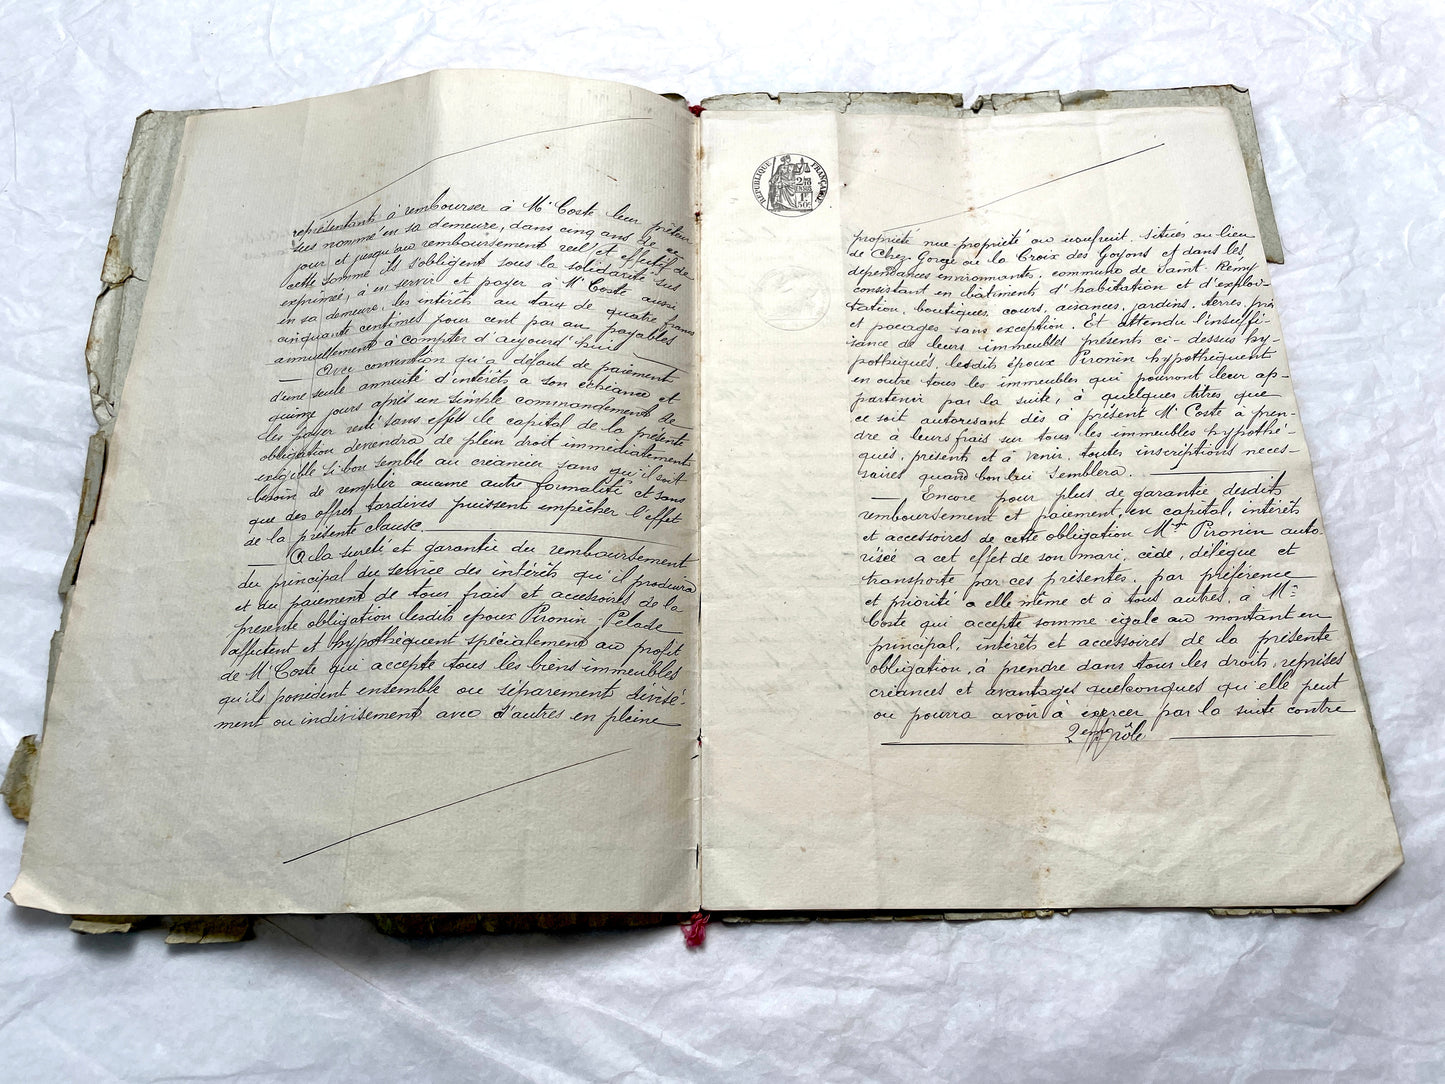 représentants à rembourser à Mr Coste leur prêteur
sus nommé en sa demeure, dans cinq ans de ce
jour et jusqu'au remboursement réel et effectif de
cette somme ils s'obligent sous la solidarité sus
exprimée, à en servir et payer à Mr Coste aussi
en sa demeure, les intérêts au taux de quatre francs
cinquante centimes pour cent par an payables
annuellement à compter d'aujourd'hui
Avec convention qu'à défaut de paiement
d'une seule annuité d'intérêts a son échéance et
quinze jours après un simple commandement de
les payer resté sans effet le capital de la présente
obligation deviendra de plein droit immédiatement
exigible si bon semble au créancier sans qu'il soit
besoin de remplir aucune autre formalité et sans
que des offres tardives puissent empêcher l'effet
de la présente clause
A la sureté et garantie du remboursement
du principal du service des intérêts qu'il produira
et du paiement de tous frais et accessoires de la
présente obligation lesdits époux Pironin Pélade
affectent et hypothèquent spécialement au profit
de Mr Coste qui accepte tous les biens immeubles
qu'ils possèdent ensemble ou séparément divisé-
ment ou indivisement avec d'autres en pleine
RÉPUBLIQUE FRANÇAISE
propriété nue-propriété ou usufruit, situés au lieu
de Chez Gorge ou la Croix des Goyons et dans les
dépendances environnantes, commune de Saint-Remy
consistant en bâtiments d'habitation et d'exploi-
tation, boutiques, cours, aisances, jardins, terres, prés
et pacages sans exception. Et attendu l'insuffi-
sance de leurs immeubles présents ci-dessus hy-
pothéqués, lesdits époux Pironin hypothèquent
en outre tous les immeubles qui pourront leur ap-
partenir par la suite, à quelques titres que
ce soit autorisant dès à présent Mr Coste à pren-
dre à leurs frais sur tous les immeubles hypothé-
qués, présents et à venir, toutes inscriptions néces-
saires quand bon lui semblera.
Encore pour plus de garantie desdits
remboursement et paiement, en capital, intérêts
et accessoires de cette obligation Mme Pironin auto-
risée a cet effet de son mari, cède, délègue et
transporte par ces présentes, par préférence
et priorité a elle même et à tous autres, à Mr
Coste qui accepte somme égale au montant en
principal, intérêts et accessoires de la présente
obligation, à prendre dans tous les droits, reprises
créances et avantages quelconques qu'elle peut
ou pourra avoir à exercer par la suite contre
2eme rôle